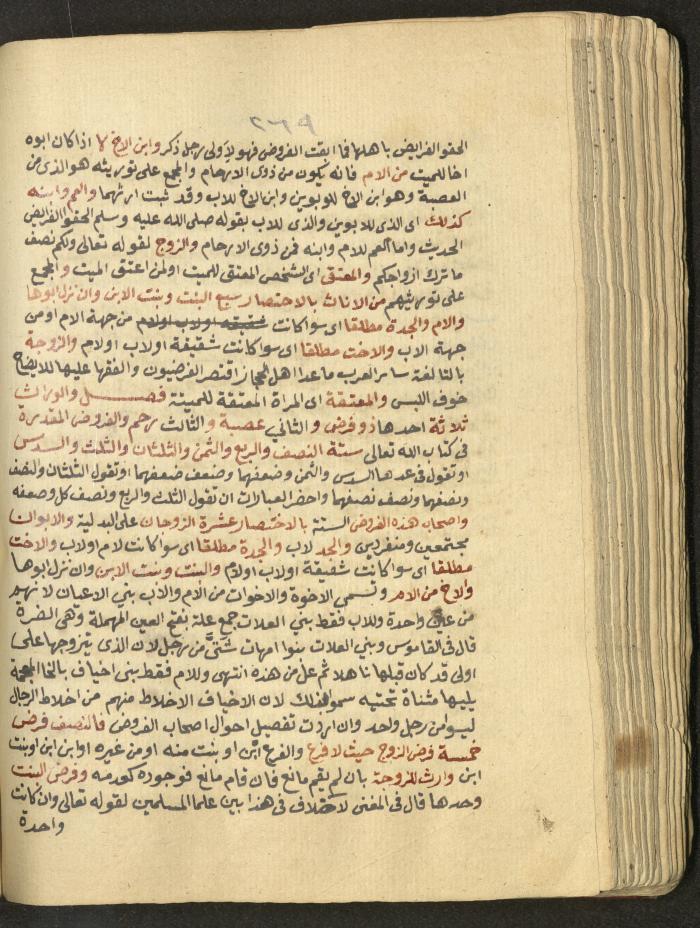 ٢٦٩
الحقوا الفرايض باهلها فما ابقت الفروض فهو لاولى رجل ذكر وابن الاخ لا اذا كان ابوه
اخا للميت من الام فانه يكون من ذوى الارحام والمجمع على توريثه هو الذى من
العصبة وهو ابن الاخ للابوين وابن الاخ للاب وقد ثبت ارثهما والعم وابنه
كذلك اى الذى للابوين والذى للاب بقوله صلى الله عليه وسلم الحقوا الفرايض
الحديث واما العم للام وابنه فمن ذوى الارحام والزوج لقوله تعالى ولكم نصف
ما ترك ازواجكم والمعتق اى الشخص المعتق للميت او لمن اعتق الميت والمجمع
على توريثهم من الاناث بالاختصار سبع البنت وبنت الابن وان نزل ابوها
والام والجدة مطلقا اى سوا كانت شقيقه اولاب اولام من جهة الام او من
جهة الاب والاخت مطلقا اى سوا كانت شقيقة اولاب اولام والزوجة
بالتا لغة ساير العرب ما عدا اهل الحجاز اقتصر الفرضيون والفقها عليها للايضاح
خوف اللبس والمعتقة اى المراة المعتقة للميتة فصل والوراث
ثلاثة احدها ذو فرض والثاني عصبة والثالث رحم والفروض المقدرة
فى كتاب الله تعالى ستة النصف والربع والثمن والثلثان والثلث والسدس
او تقول فى عدها السدس والثمن وضعفهما وضعف ضعفهما او تقول الثلثان والنصف
ونصفهما ونصف نصفهما واخصر العبارات ان تقول الثلث والربع ونصف كل وضعفه
واصحاب هذه الفروض الستة بالاختصار عشرة الزوجان على البدلية والابوان
مجتمعين ومنفردين والجد لاب والجدة مطلقا اى سوا كانت لام او لاب والاخت
مطلقا اى سوا كانت شقيقة اولاب اولام والبنت وبنت الابن وان نزل ابوها
والاخ من الام وتسمى الاخوة والاخوات من الام والاب بني الاعيان لانهم
من عين واحدة وللاب فقط بني العلات جمع علة بفتح العين المهملة وهى الضرة
قال فى القاموس وبني العلات بنوا امهات شتى من رجل لان الذى يتزوجها على
اولى قد كان قبلها ناهل ثم عل من هذه انتهى وللام فقط بنى اخياف بالخا المعجمة
يليها مثناة تحتيه سموا بذلك لان الاخياف الاخلاط منهم من اخلاط الرجال
ليسوا من رجل واحد وان اردت تفصيل احوال اصحاب الفروض فالنصف فرض
خمسة فرض الزوج حيث لا فرع والفرع ابن او بنت منه او من غيره او ابن ابن او بنت
ابن وارث للزوجة بان لم يقم مانع فان قام مانع فوجوده كعدمه وفرض البنت
وحدها قال فى المغنى لا خلاف فى هذا بين علما المسلمين لقوله تعالى وان كانت
واحدة